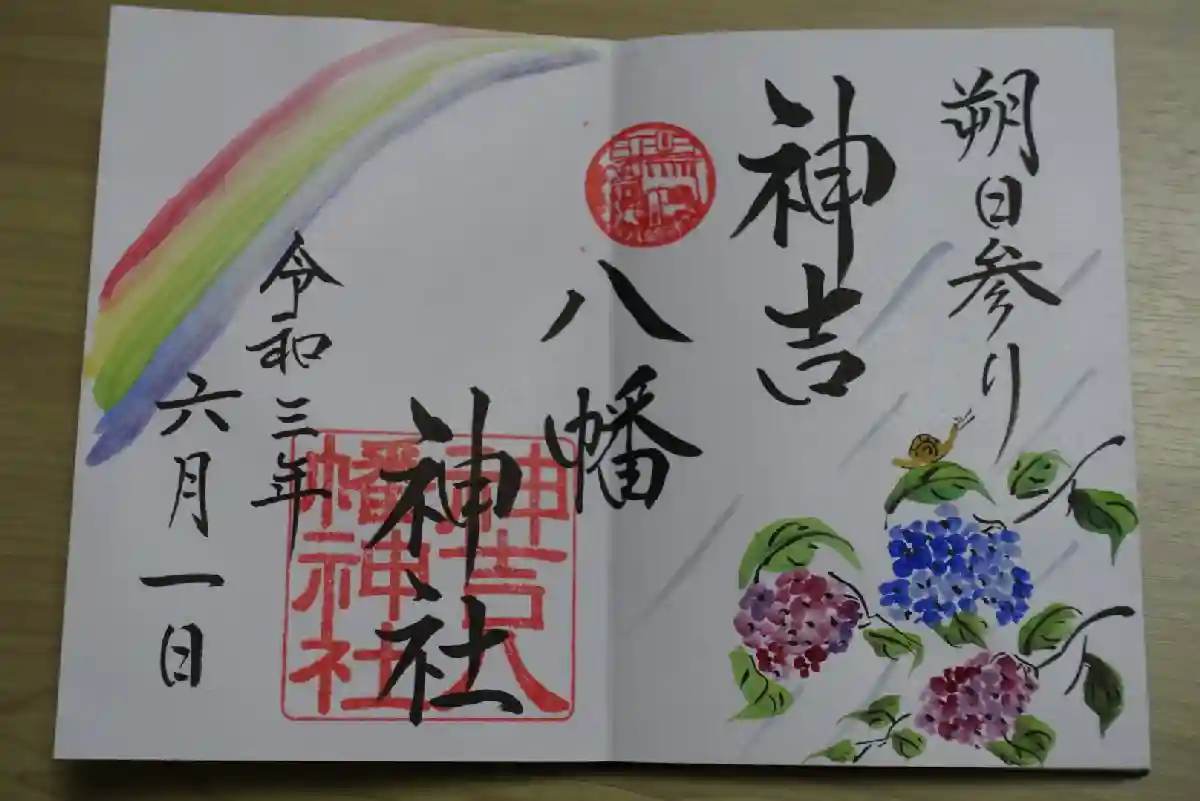 朔日参り
神吉
八幡
神社
令和三年
六月一日
神吉八
幡神社